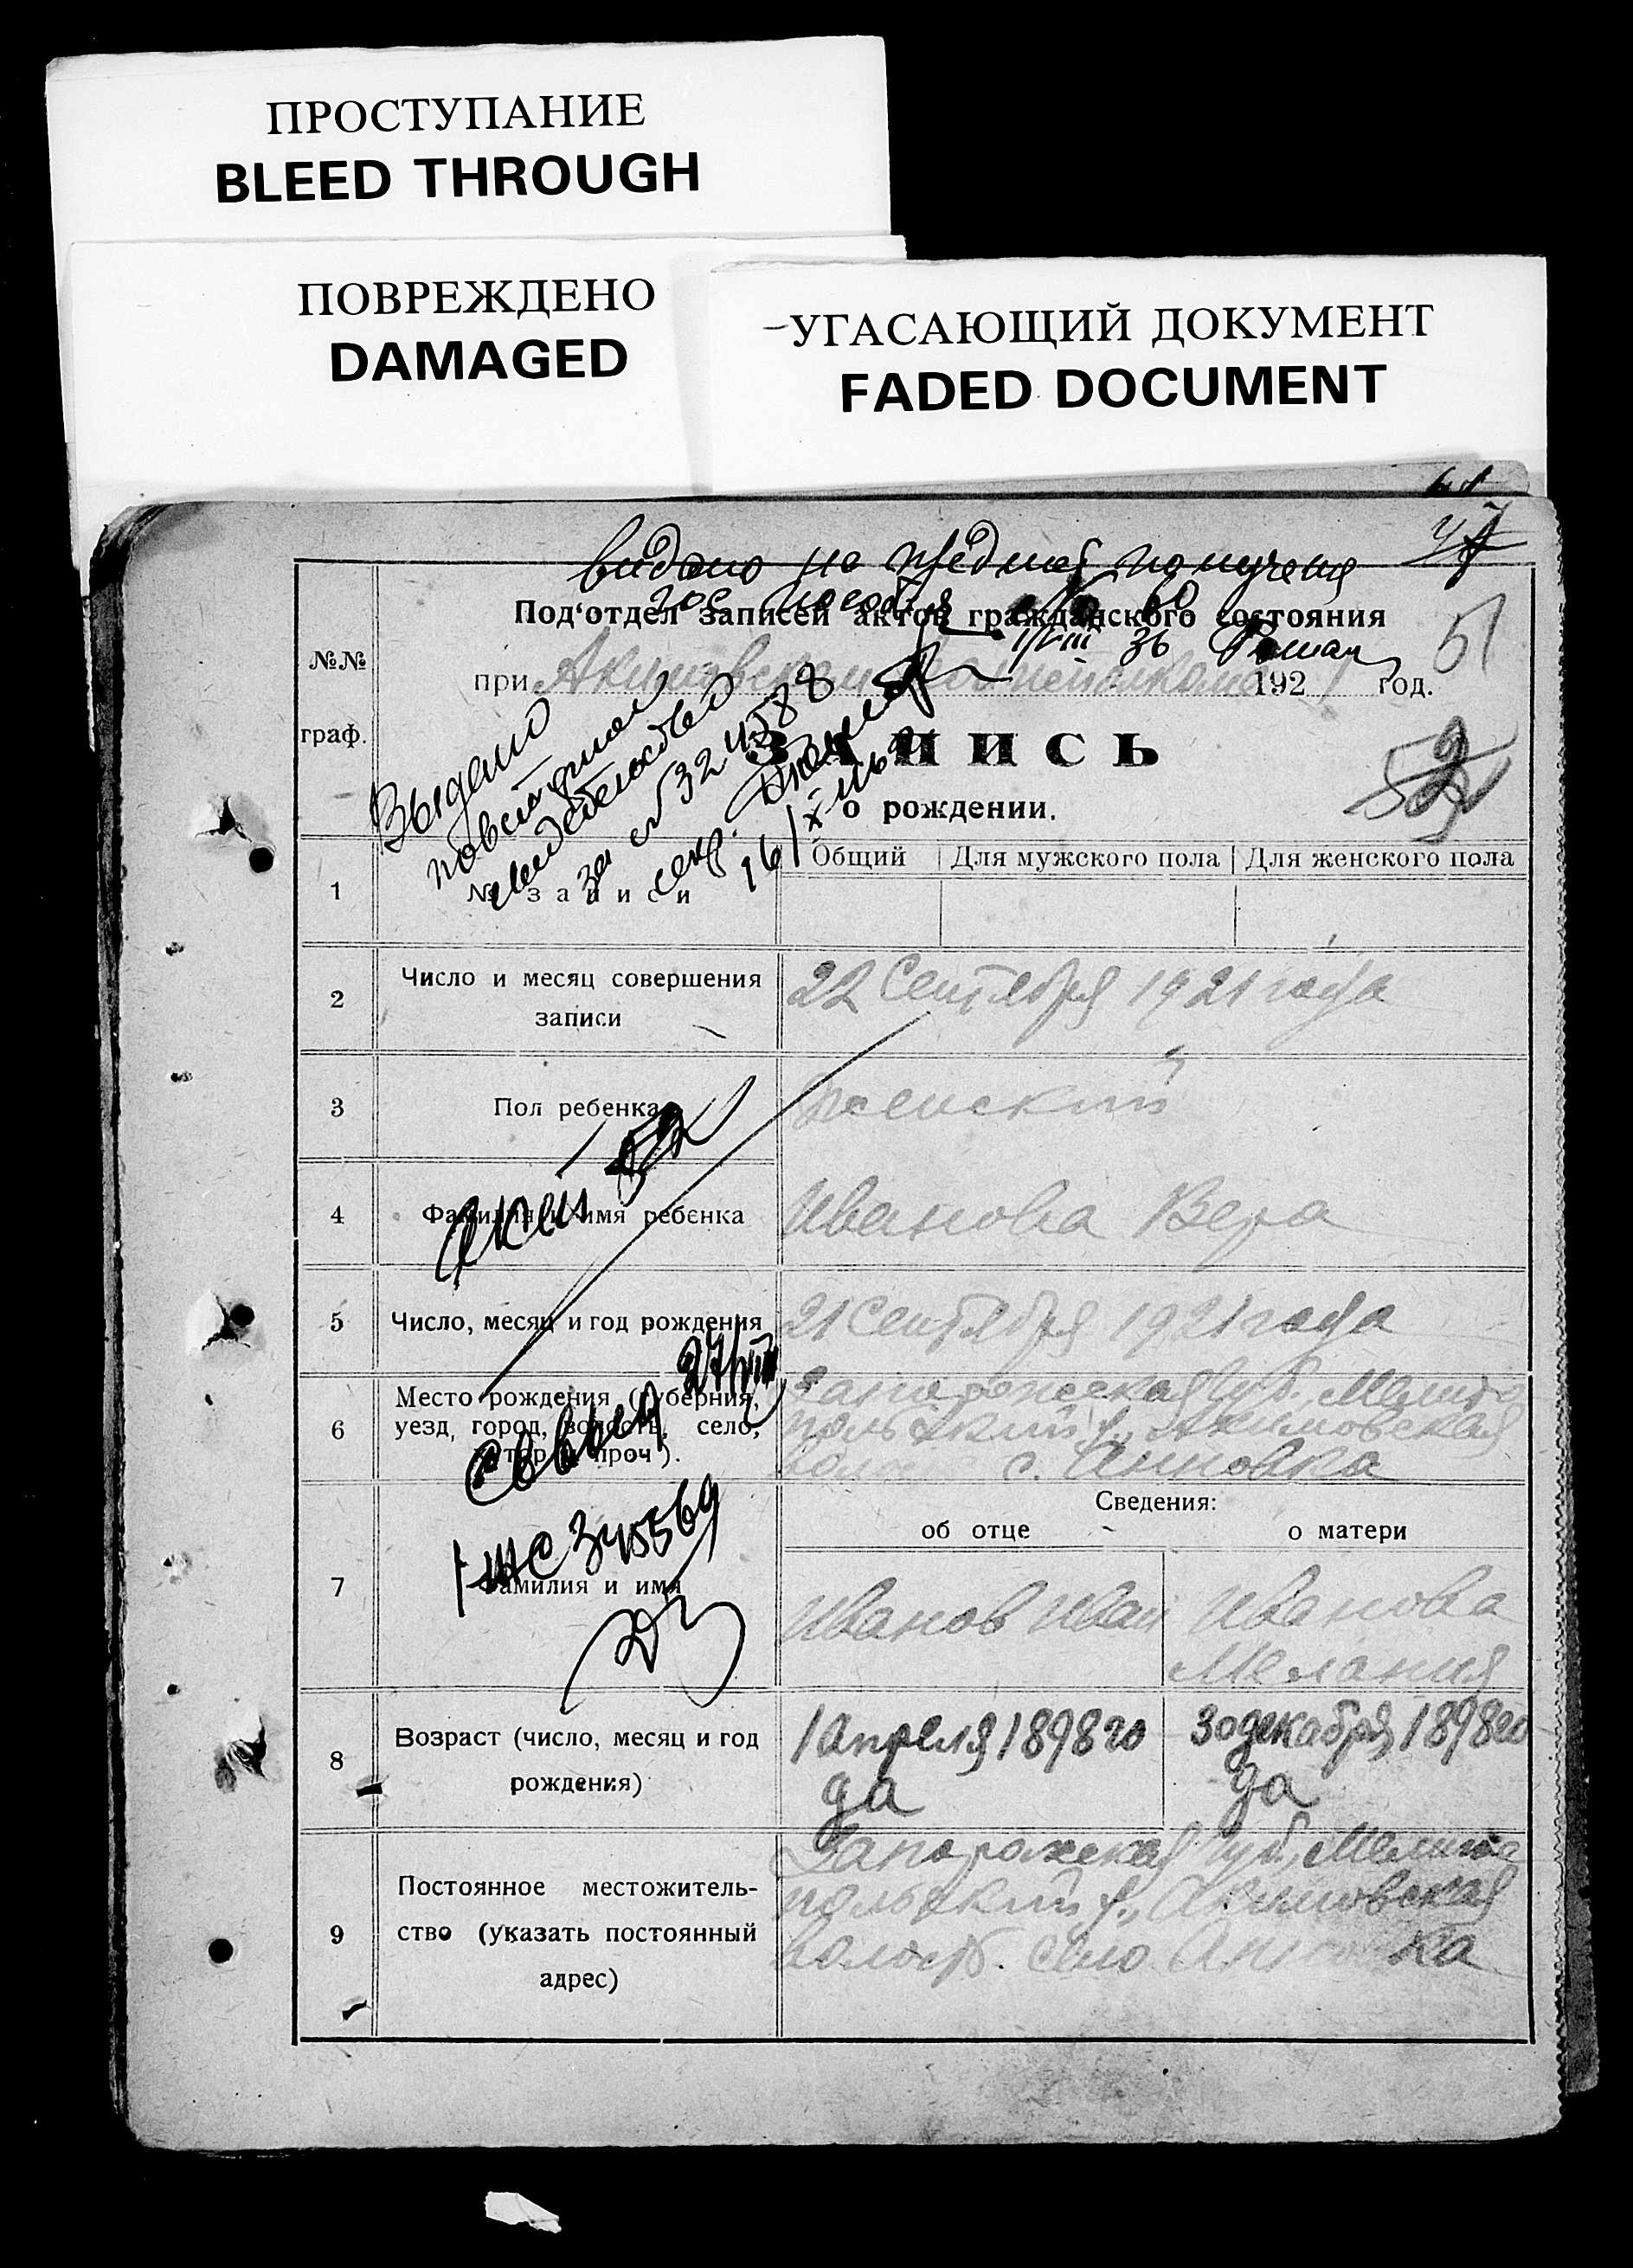 ПРОСТУПАНИЕ
BLEED THROUGH
ПОВРЕЖДЕНО
DAMAGED
УГАСАЮЩИЙ ДОКУМЕНТ
FADED DOCUMENT
видано на предмет получения
Под'отдел записей актов гражданского состояния
51
№№
граф.
при Акимовском 192 год.
ЗАПИСЬ
о рождении.
Выдано
повторное
свидетельство
за № 324588
секр.
16/X
Общий Для мужского пола Для женского пола
1 № записи
2 Число и месяц совершения
записи
22 Сентября 1921 года
3 Пол ребенка женский
4 Фамилия и имя ребенка Иванова Вера
5 Число, месяц и год рождения 21 Сентября 1921 года
6 Место рождения (губерния,
уезд, город, волость, село,
хутор и проч.).
Запорожская губ. Мелито
польский у., Акимовская
волос с. Анновка
ЖС 345569
Сведения:
об отце о матери
7 Фамилия и имя Иванов Иван Иванова
Мелания
8 Возраст (число, месяц и год
рождения)
1 Апреля 1898 го
да
30 декабря 1898 го
да
9 Постоянное местожитель-
ство (указать постоянный
адрес)
Запорожская губ., Мелито
польский у., Акимовская
волость. село Анновка